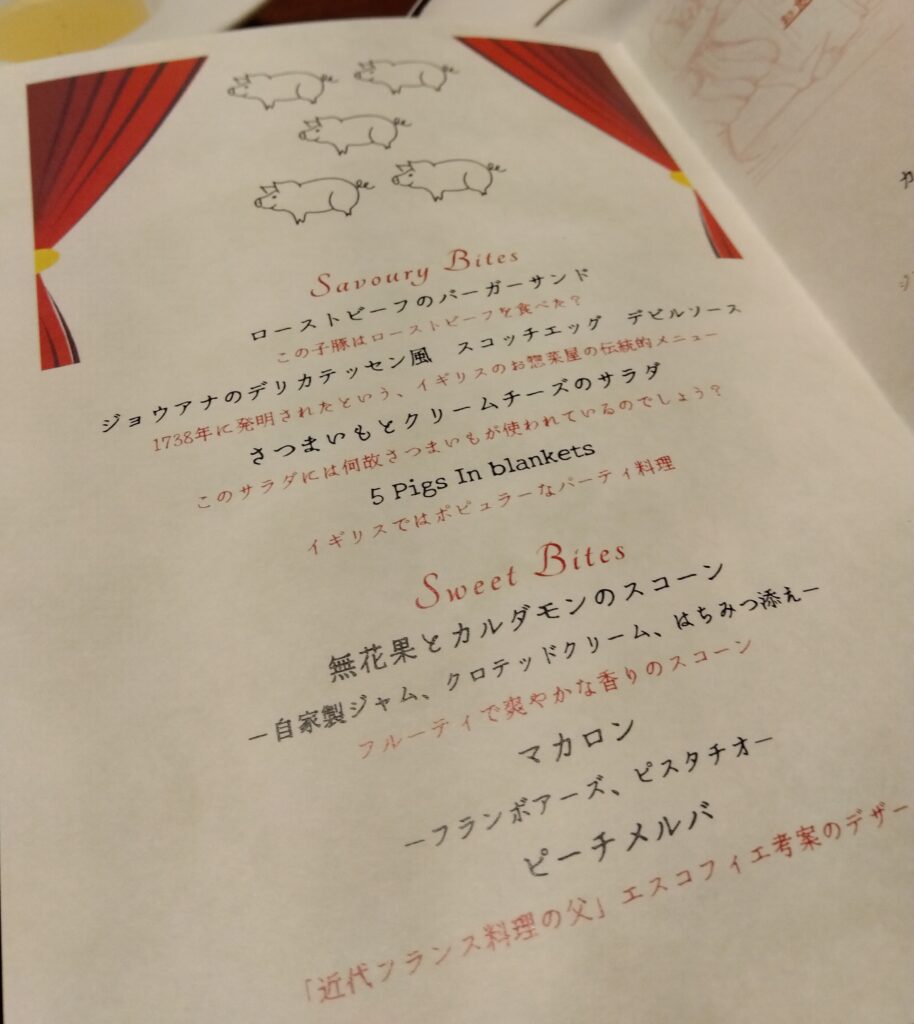 Savoury Bites
ローストビーフのバーガーサンド
この子豚はローストビーフを食べた？
ジョウアナのデリカテッセン風　スコッチエッグ　デビルソース
1738年に発明されたという、イギリスのお惣菜屋の伝統的メニュー
さつまいもとクリームチーズのサラダ
このサラダには何故さつまいもが使われているのでしょう？
5 Pigs In blankets
イギリスではポピュラーなパーティ料理
Sweet Bites
無花果とカルダモンのスコーン
ー自家製ジャム、クロテッドクリーム、はちみつ添えー
フルーティで爽やかな香りのスコーン
マカロン
ーフランボアーズ、ピスタチオー
ピーチメルバ
「近代フランス料理の父」エスコフィエ考案のデザー